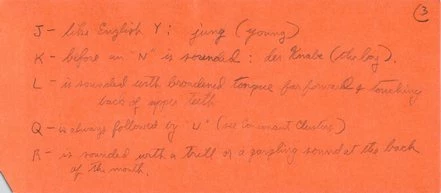 3
J - like English Y: jung (young)
K - before an "N" is sounded: der Knabe (the boy).
L - is sounded with broadened tongue far forward & touching
back of upper teeth
Q - is always followed by "U" (see Consonant Clusters)
R - is sounded with a trill or a gargling sound at the back
of the mouth.